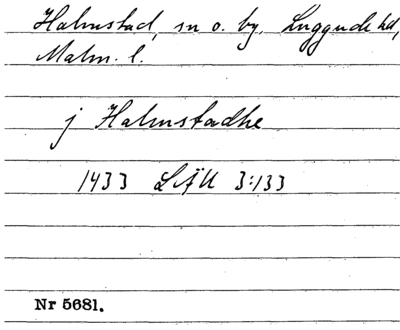 Halmstad, sn o. by. Luggude hd,
Malm. l.
j Halmstadhe
1433 LÄU 3:133
Nr 5681.